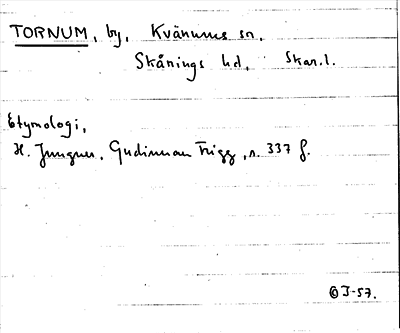 TORNUM, by, Kvänums sn,
Skånings hd, Skar.l.
Etymologi,
H. Jungner, Gudinnan Frigg, s. 337 f.
©J-57.